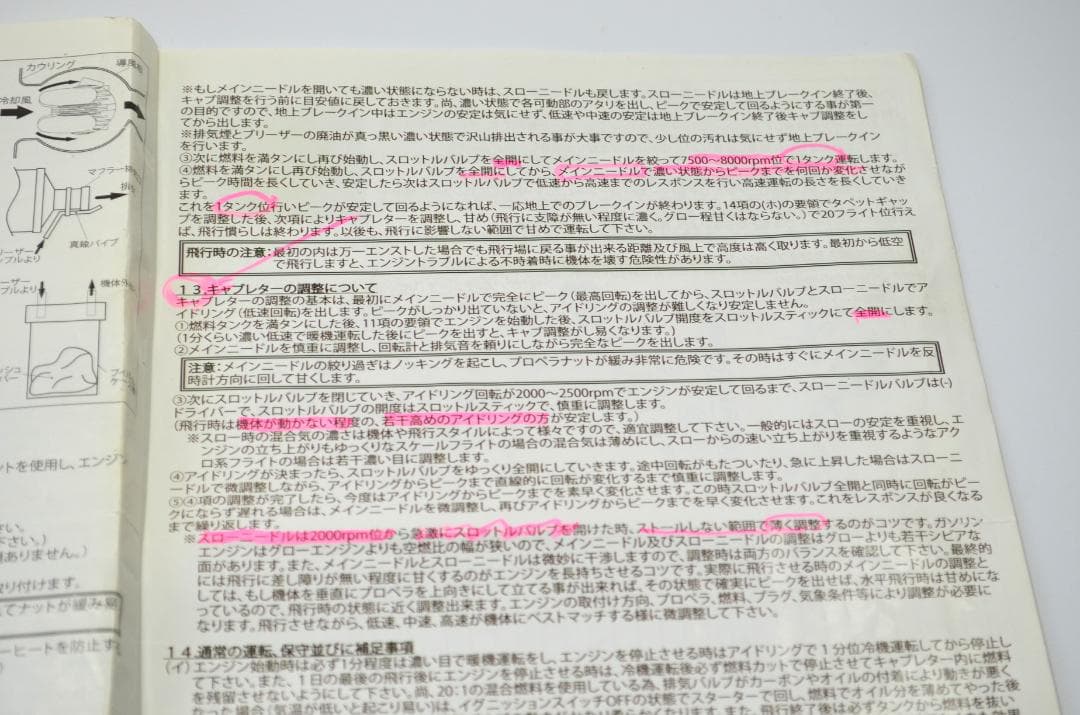 カウリング
導風板
冷却風
マフラー
排気
真鍮パイプ
リーザー
ップルより
ブルより
機体外
ットを使用し、エンジン
さい。
い。)
)
題ありません。)
さい。
取り付けます。
てナットが緩み易
ーヒートを防止す
※もしメインニードルを開いても濃い状態にならない時は、スローニードルも戻します。スローニードルは地上ブレークイン終了後、
キャブ調整を行う前に目安値に戻しておきます。尚、濃い状態で各可動部のアタリを出し、ピークで安定して回るようにする事が第一
の目的ですので、地上ブレークイン中はエンジンの安定は気にせず、低速や中速の安定は地上ブレークイン終了後キャブ調整をし
てから出します。
※排気煙とブリーザーの廃油が真っ黒い濃い状態で沢山排出される事が大事ですので、少し位の汚れは気にせず地上ブレークイン
を行います。
③次に燃料を満タンにし再び始動し、スロットルバルブを全開にしてメインニードルを絞って7500～8000rpm位で1タンク運転します。
④燃料を満タンにし再び始動し、スロットルバルブを全開にしてから、メインニードルで濃い状態からピークまでを何回か変化させなが
らピーク時間を長くしていき、安定したら次はスロットルバルブで低速から高速までのレスポンスを行い高速運転の長さを長くしていき
ます。
これを1タンク位行いピークが安定して回るようになれば、一応地上でのブレークインが終わります。14項の(ホ)の要領でタペットギャッ
プを調整した後、次項によりキャブレターを調整し、甘め(飛行に支障が無い程度に濃く。グロー程甘くはならない。)で20フライト位行え
ば、飛行慣らしは終わります。以後も、飛行に影響しない範囲で甘めで運転して下さい。
飛行時の注意：最初の内は万一エンストした場合でも飛行場に戻る事が出来る距離及び風上で高度は高く取ります。最初から低空
で飛行しますと、エンジントラブルによる不時着時に機体を壊す危険性があります。
13.キャブレターの調整について
キャブレターの調整の基本は、最初にメインニードルで完全にピーク(最高回転)を出してから、スロットルバルブとスローニードルでア
イドリング(低速回転)を出します。ピークがしっかり出ていないと、アイドリングの調整が難しくなり安定しません。
①燃料タンクを満タンにした後、11項の要領でエンジンを始動した後、スロットルバルブ開度をスロットルスティックにて全開にします。
(1分くらい濃い低速で暖機運転した後にピークを出すと、キャブ調整がし易くなります。)
②メインニードルを慎重に調整し、回転計と排気音を頼りにしながら完全なピークを出します。
注意：メインニードルの絞り過ぎはノッキングを起こし、プロペラナットが緩み非常に危険です。その時はすぐにメインニードルを反
時計方向に回して甘くします。
③次にスロットルバルブを閉じていき、アイドリング回転が2000～2500rpmでエンジンが安定して回るまで、スローニードルバルブは(-)
ドライバーで、スロットルバルブの開度はスロットルスティックで、慎重に調整します。
(飛行時は機体が動かない程度の、若干高めのアイドリングの方が安定します。)
※スロー時の混合気の濃さは機体や飛行スタイルによって様々ですので、適宜調整して下さい。一般的にはスローの安定を重視し、エ
ンジンの立ち上がりもゆっくりなスケールフライトの場合の混合気は薄めにし、スローからの速い立ち上がりを重視するようなアク
ロ系フライトの場合は若干濃い目に調整します。
④アイドリングが決まったら、スロットルバルブをゆっくり全開にしていきます。途中回転がもたついたり、急に上昇した場合はスローニ
ードルで微調整しながら、アイドリングからピークまで直線的に回転が変化するまで慎重に調整します。
⑤④項の調整が完了したら、今度はアイドリングからピークまでを素早く変化させます。この時スロットルバルブ全開と同時に回転がピー
クにならず遅れる場合は、メインニードルを微調整し、再びアイドリングからピークまでを早く変化させます。これをレスポンスが良くなる
まで繰り返します。
※スローニードルは2000rpm位から急激にスロットルバルブを開けた時、ストールしない範囲で薄く調整するのがコツです。ガソリン
エンジンはグローエンジンよりも空燃比の幅が狭いので、メインニードル及びスローニードルの調整はグローよりも若干シビアな
面があります。また、メインニードルとスローニードルは微妙に干渉しますので、調整時は両方のバランスを確認して下さい。最終的
には飛行に差し障りが無い程度に甘くするのがエンジンを長持ちさせるコツです。実際に飛行させる時のメインニードルの調整と
しては、もし機体を垂直にプロペラを上向きにして立てる事が出来れば、その状態で確実にピークを出せば、水平飛行時は甘めにな
っているので、飛行時の状態に近く調整出来ます。エンジンの取付け方向、プロペラ、燃料、プラグ、気象条件等により調整が必要に
なります。飛行させながら、低速、中速、高速が機体にベストマッチする様に微調整して下さい。
14.通常の運転、保守並びに補足事項
(イ)エンジン始動時は必ず1分程度は濃い目で暖機運転をし、エンジンを停止させる時はアイドリングで1分位冷機運転してから停止し
て下さい。また、1日の最後の飛行後にエンジンを停止させる時は、冷機運転後必ず燃料カットで停止させてキャブレター内に燃料
を残留させないようにして下さい。尚、20:1の混合燃料を使用している為、排気バルブがカーボンやオイルの付着により動きが悪く
なった場合(気温が低いと起こり易い)は、イグニッションスイッチOFFの状態でスターターで回し、燃料でオイル分を薄めてやった後